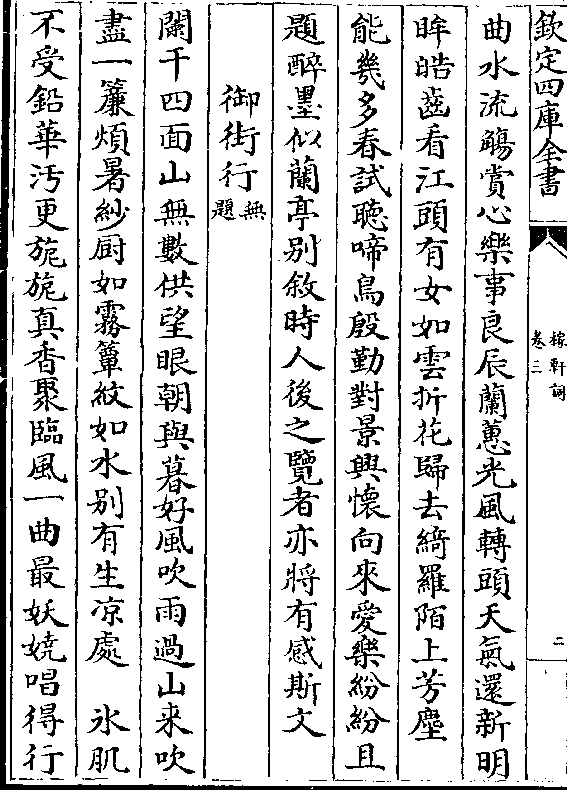 欽定四庫全書
稼軒詞
卷三
二
曲水流觴賞心樂事良辰蘭蕙光風轉頭天氣還新明
眸皓齒看江頭有女如雲折花歸去綺羅陌上芳塵
能幾多春試聽啼鳥殷勤對景興懷向來愛樂紛紛且
題醉墨似蘭亭别敘時人後之覽者亦將有感斯文
御街行無題
闌干四面山無數供望眼朝與暮好風吹雨過山来吹
盡一簾煩暑紗厨如霧簟紋如水别有生凉處　氷肌
不受鉛華汚更旎旎真香聚臨風一曲最妖嬈唱得行